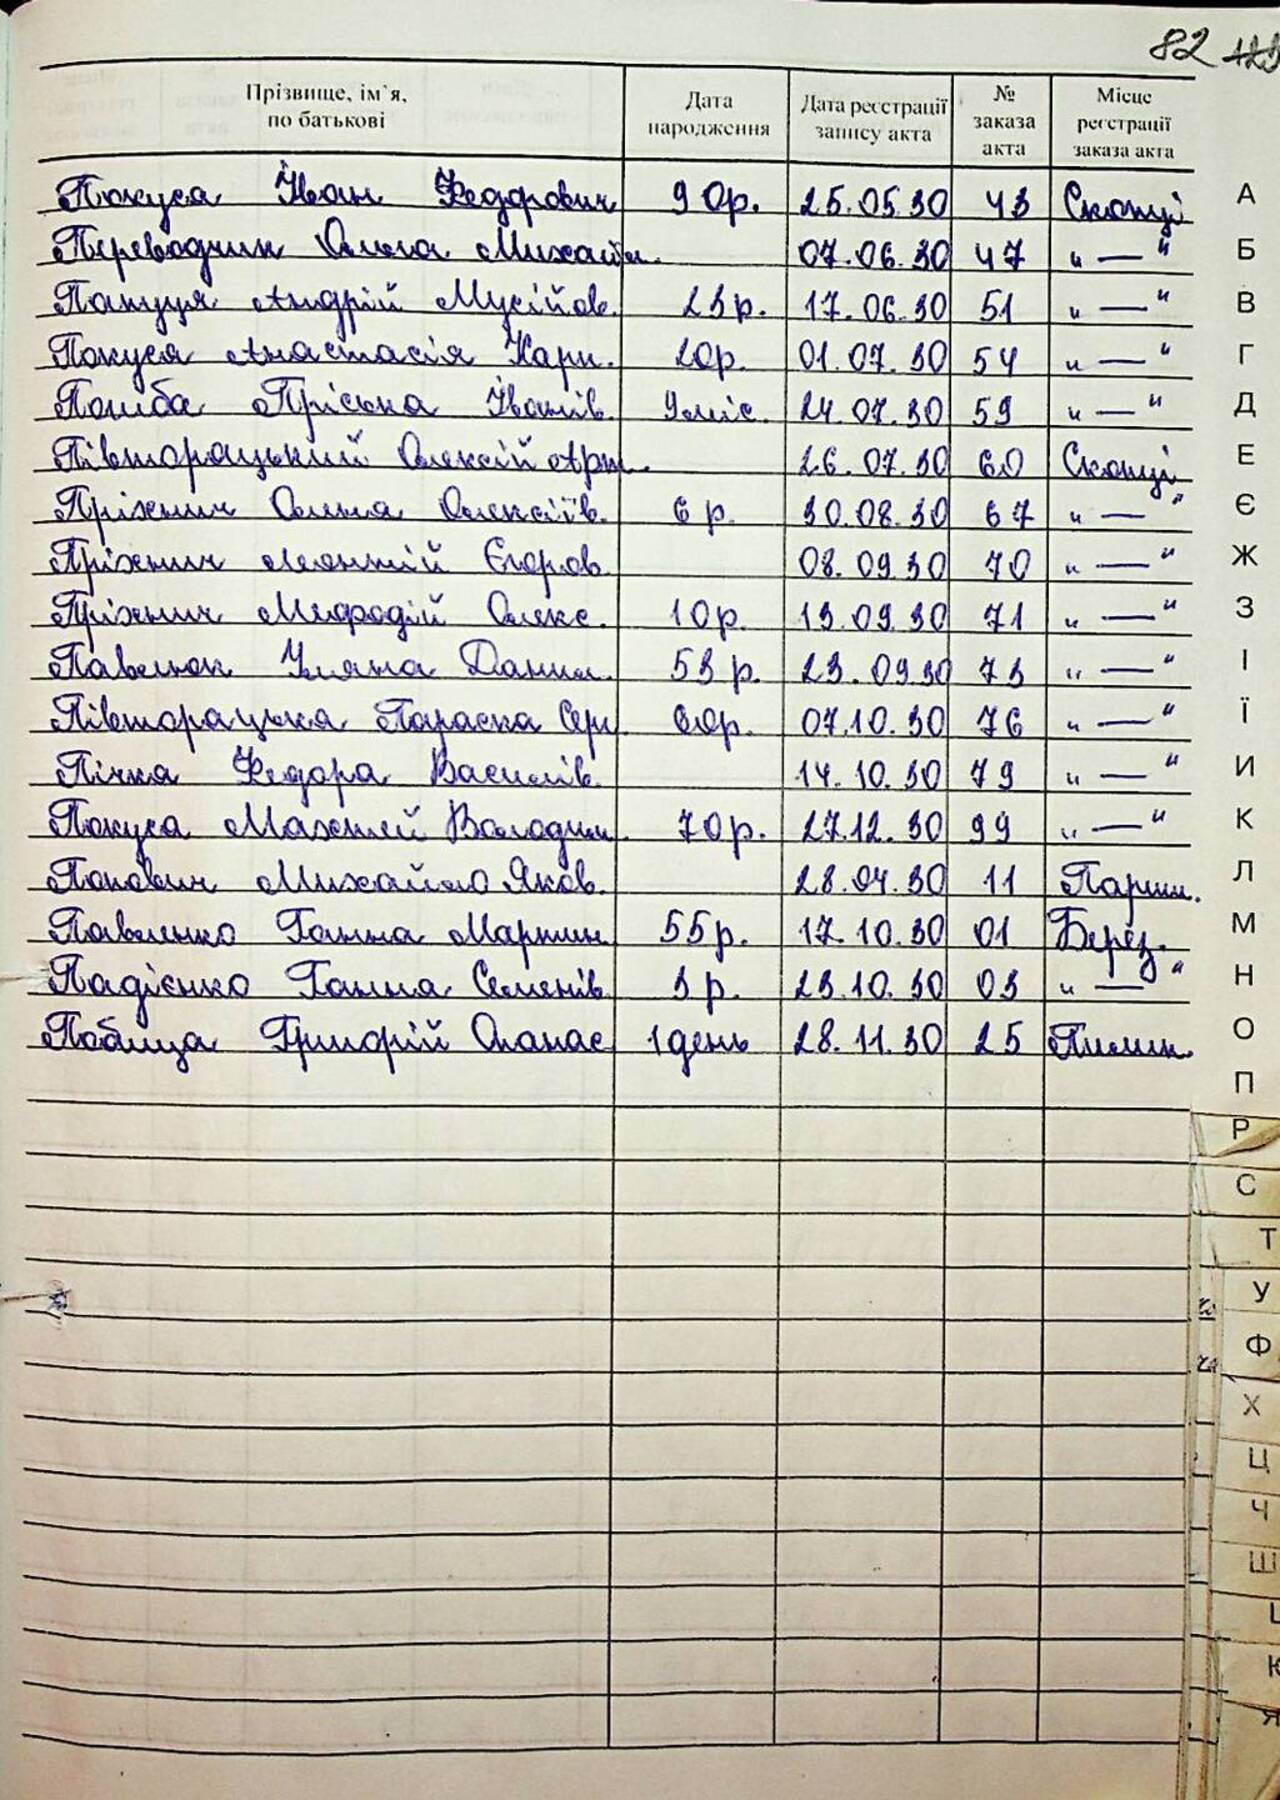 82 123
Прізвище, ім`я, по батькові Дата народження Дата реєстрації запису акта № заказа акта Місце реєстрації заказа акта
Покуса Іван Федорович 90р. 25.05.30 43 Сканці
Переводчик Ольга Михайл. 07.06.30 47 "—"
Пануця Андрій Мусійов. 23р. 17.06.30 51 "—"
Покуса Анастасія Карп. 20р. 01.07.30 54 "—"
Поліба Пріська Іванів. 9 міс. 24.07.30 59 "—"
Півторацький Олексій Арт. 26.07.30 60 Сканці
Пріхнич Олена Олексіїв. 6 р. 30.08.30 67 "—"
Пріхнич Леонтій Єгоров. 08.09.30 70 "—"
Пріхнич Мефодій Олекс. 10р. 13.09.30 71 "—"
Павелюк Уляна Данил. 53 р. 23.09.30 73 "—"
Півторацька Параска Сер 60р. 07.10.30 76 "—"
Пічка Федора Василів. 14.10.30 79 "—"
Покуса Махтей Володим. 70р. 27.12.30 99 "—"
Попович Михайло Яков. 28.04.30 11
Павленко Ганна Мартин. 55р. 17.10.30 01 Берез.
Падієнко Ганна Семенів. 3 р. 23.10.30 03 "—"
Григорій Опанас 1 день 28.11.30 25
А
Б
В
Г
Д
Е
Є
Ж
З
І
Ї
И
К
Л
М
Н
О
П
Р
С
Т
У
Ф
Х
Ц
Ч
Ш
Ю
Я